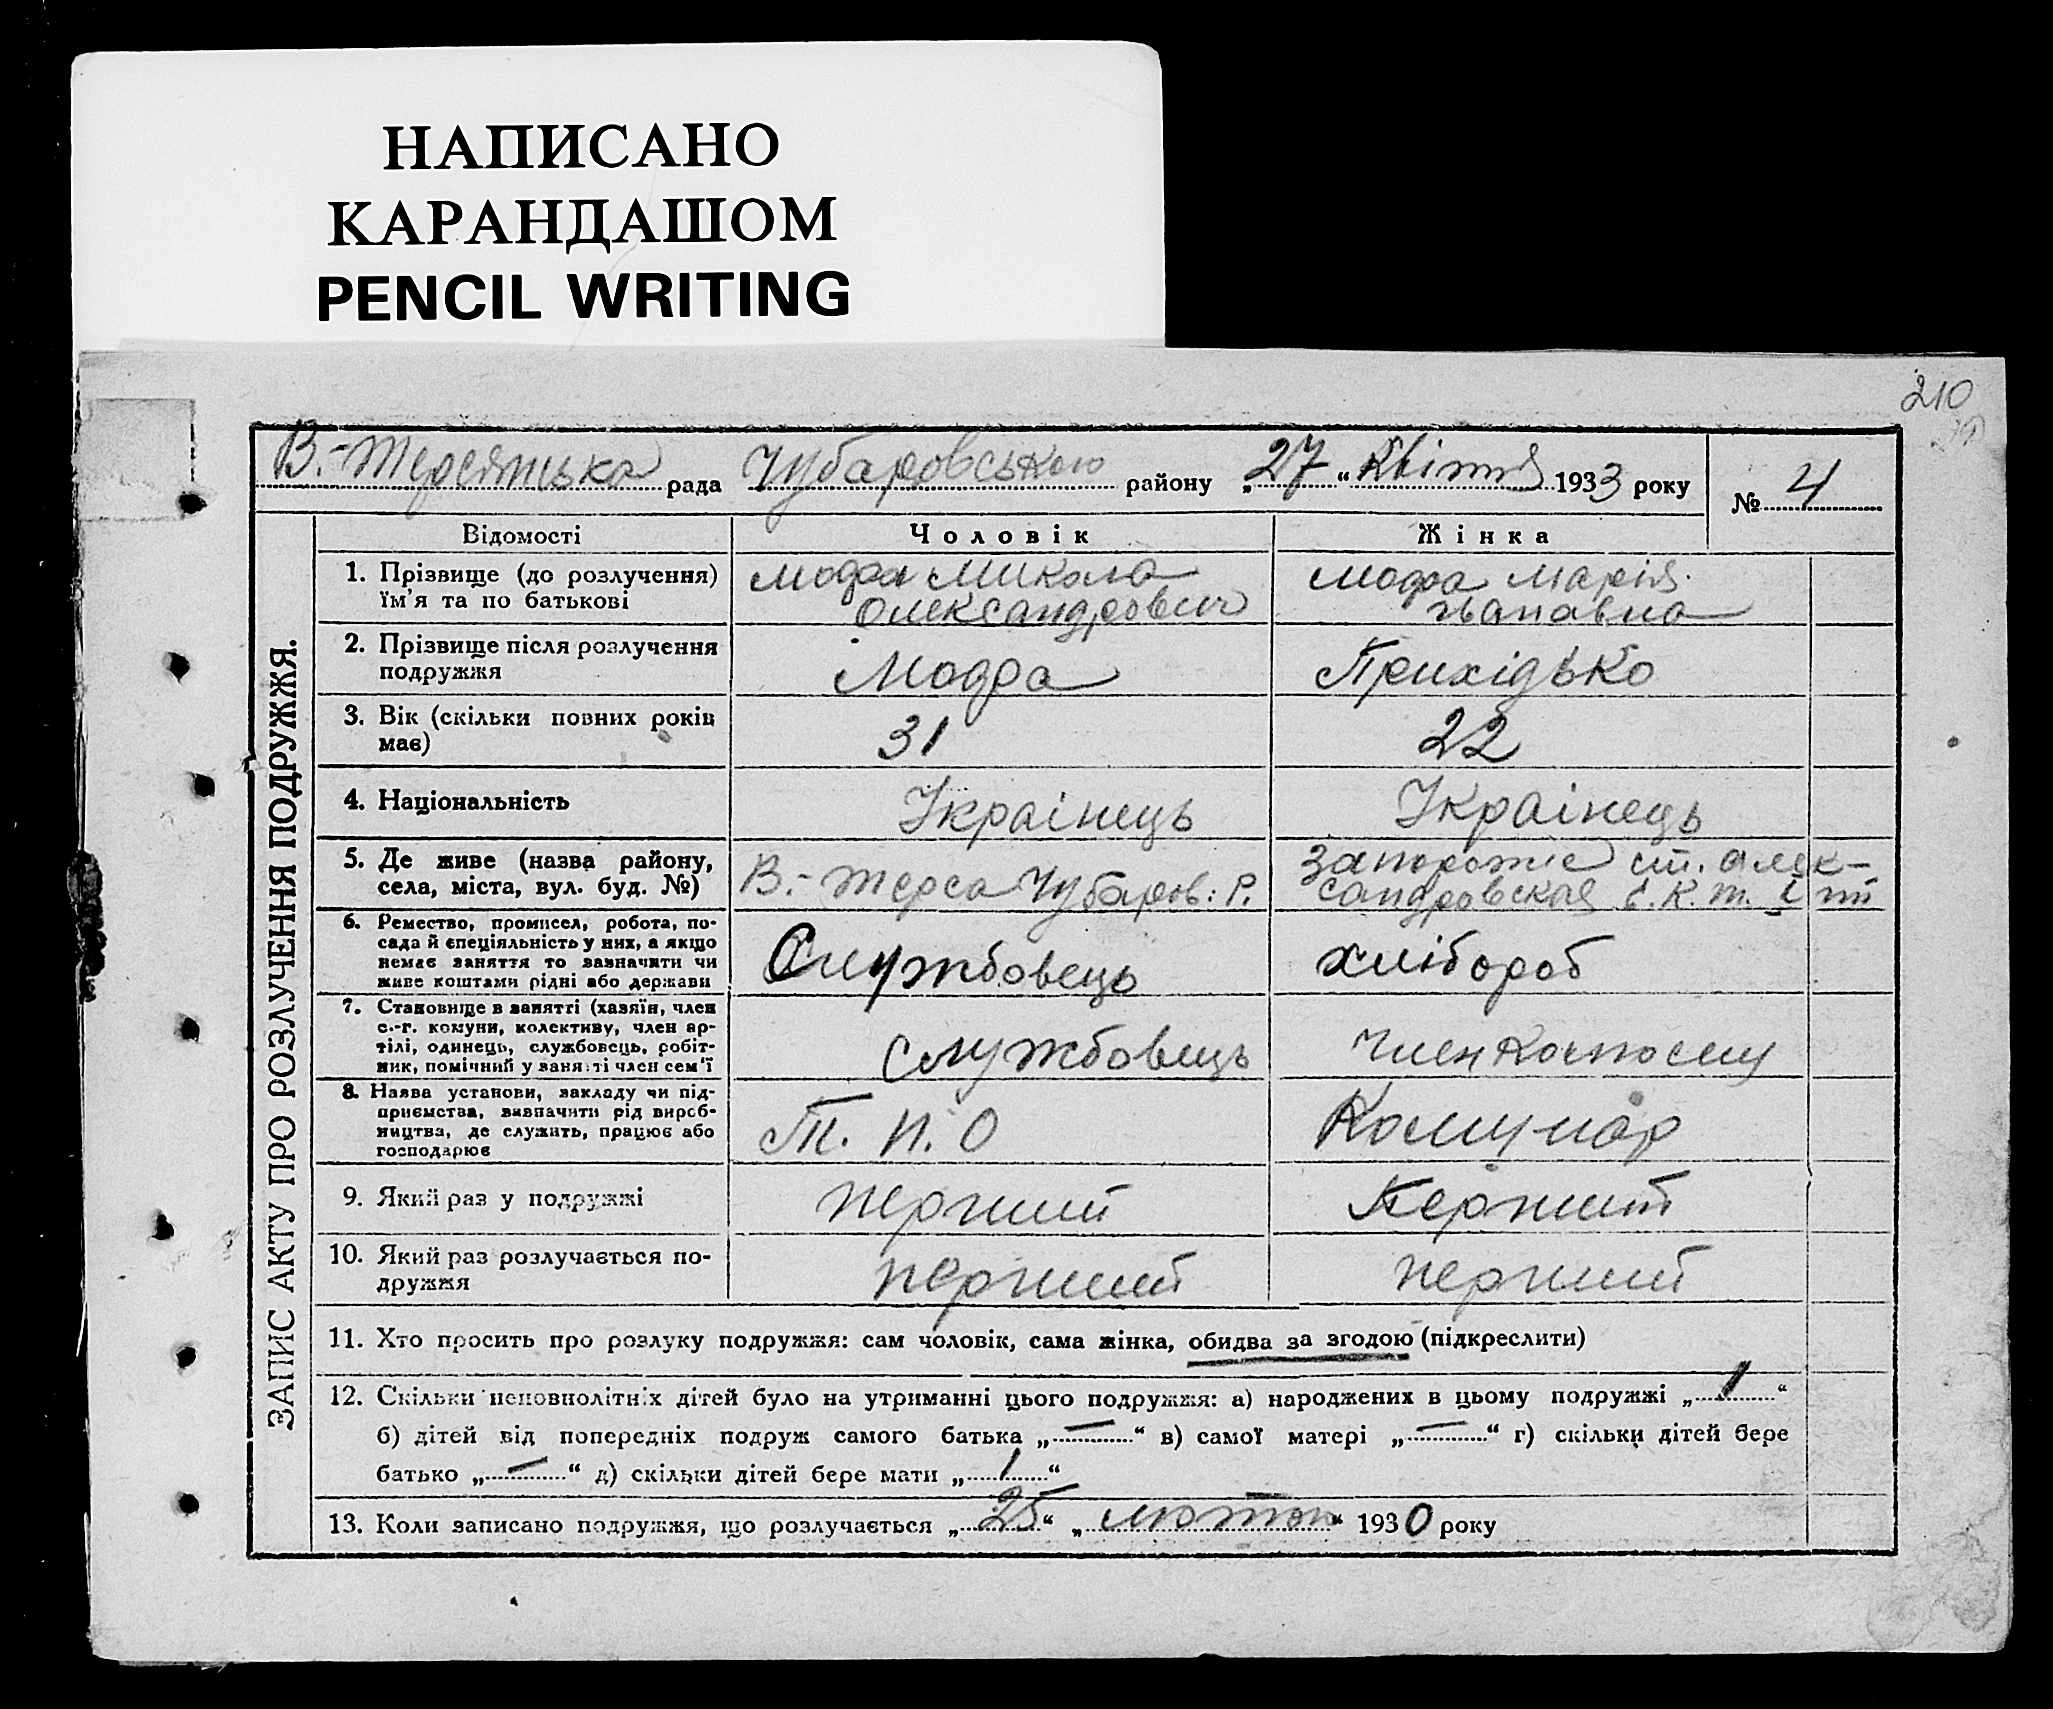 НАПИСАНО
КАРАНДАШОМ
PENCIL WRITING
210
В.-Терсянська рада Чубаровського району „27“ Квітня 1933 року № 4
ЗАПИС АКТУ ПРО РОЗЛУЧЕННЯ ПОДРУЖЖЯ.
Відомості Чоловік Жінка
1. Прізвище (до розлучення) Модра Микола Модра Марія
їм'я та по батькові Олександрович Іванавна
2. Прізвище після розлучення
подружжя Модра Прихідько
3. Вік (скільки повних років
має) 31 22
4. Національність Українець Українець
5. Де живе (назва району, Запорожіе ст. Алек-
села, міста, вул. буд. №) В.-Терса Чубаров: Р. сандровская
6. Ремество, промисел, робота, по-
сада й спеціяльність у них, а якщо
немає заняття то зазначити чи Службовець хлібороб
живе коштами рідні або держави
7. Становище в занятті (хазяїн, член
с.-г. комуни, колективу, член ар-
тілі, одинець, службовець, робіт- службовець Член
ник, помічний у занятті член сем'ї
8. Назва установи, закладу чи під-
приємства, визначити рід вироб-
ництва, де служить, працює або Т. П. О Комунар
господарює
9. Який раз у подружжі перший Перший
10. Який раз розлучається по-
дружжя перший перший
11. Хто просить про розлуку подружжя: сам чоловік, сама жінка, обидва за згодою (підкреслити)
12. Скільки неповнолітніх дітей було на утриманні цього подружжя: а) народжених в цьому подружжі „1“
б) дітей від попередніх подруж самого батька „—“ в) самої матері „—“ г) скільки дітей бере
батько „—“ д) скільки дітей бере мати „1“
13. Коли записано подружжя, що розлучається „25“ „лютого“ 1930 року